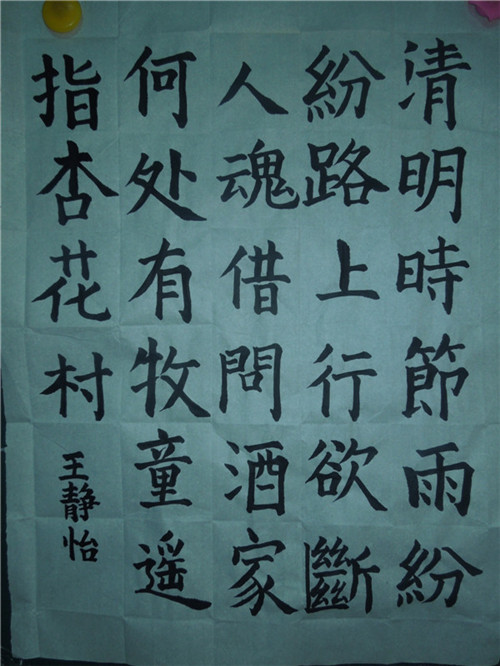 清明時節雨紛
紛路上行欲斷
人魂借問酒家
何处有牧童遥
指杏花村
王静怡